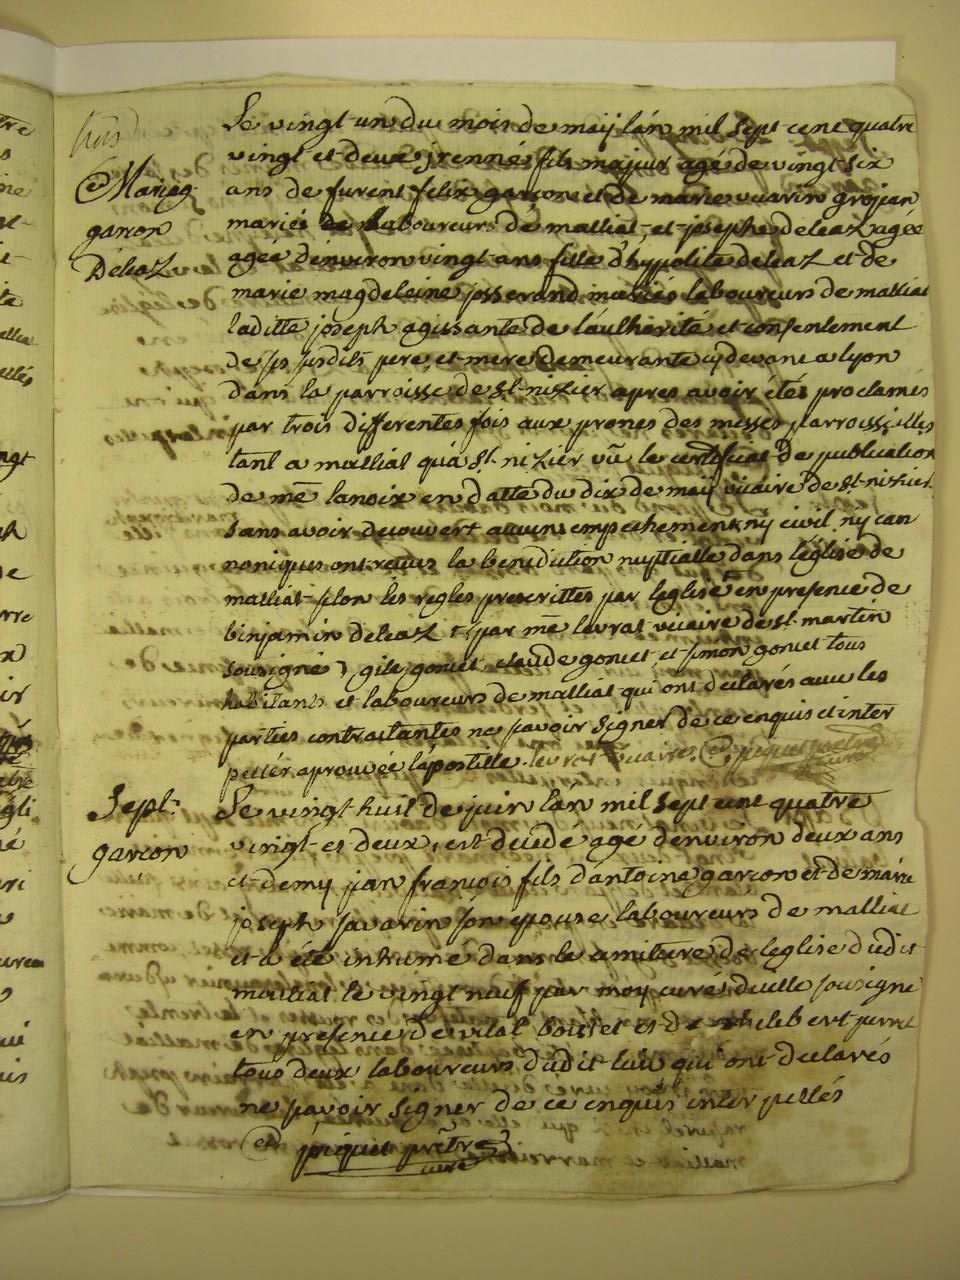 Mariag
garcon
Deleaz
Le vingt un du mois de maij lan mil sept cent quatre
vingt et deux jrenné fils majeur agé de vingt six
ans de furent felix garcon et de marie vuarin grojan
mariés laboureurs de malliat et josephe deleaz agée
agée denviron vingt ans fille d'hypolite deleaz et de
marie magdeleine josserand mariés laboureurs de malliat
laditte joseph agissante de laultherité et consentement
de ses susdits pere et mere demeurante cy devant a lyon
dans la parroisse de st nizier apres avoir étés proclamés
par trois differentes fois aux prones des messes parroissielles
tant a malliat qua st nizier vû le certificat de publication
de me lanoix en datte du dix de maij vicaire de st nizier
sans avoir decouvert aucuns empechements nij civil nij can
noniques ont recus la benediction nuptialle dans léglise de
malliat selon les regles prescrittes par leglise en presence de
binjamin deleaz par me levrat vicaire de st martin
sousignés gile gonet claude gonet et simon gonet tous
habitants et laboureurs de malliat qui ont declarés avec les
parties contractantes ne scavoir signer de ce enquis et inter
pellés aprouvée lapostille levrat vicaire piquet prêtre
curé
Sept.
garcon
Le vingt huit de juin lan mil sept cent quatre
vingt et deux, est decedé agé denviron deux ans
et demij jean françois fils dantoine garcon et de marie
joseph savarin son epouse laboureurs de malliat
et a été inhumé dans le cimitiere de leglise dudit
malliat le vingt neuf par moy curé diceluy sousigné
en presence de vital boisset et de philebert perret
tous deux laboureurs dudit lieu qui ont declarés
ne scavoir signer de ce enquis interpellés
piquet prêtre
curé